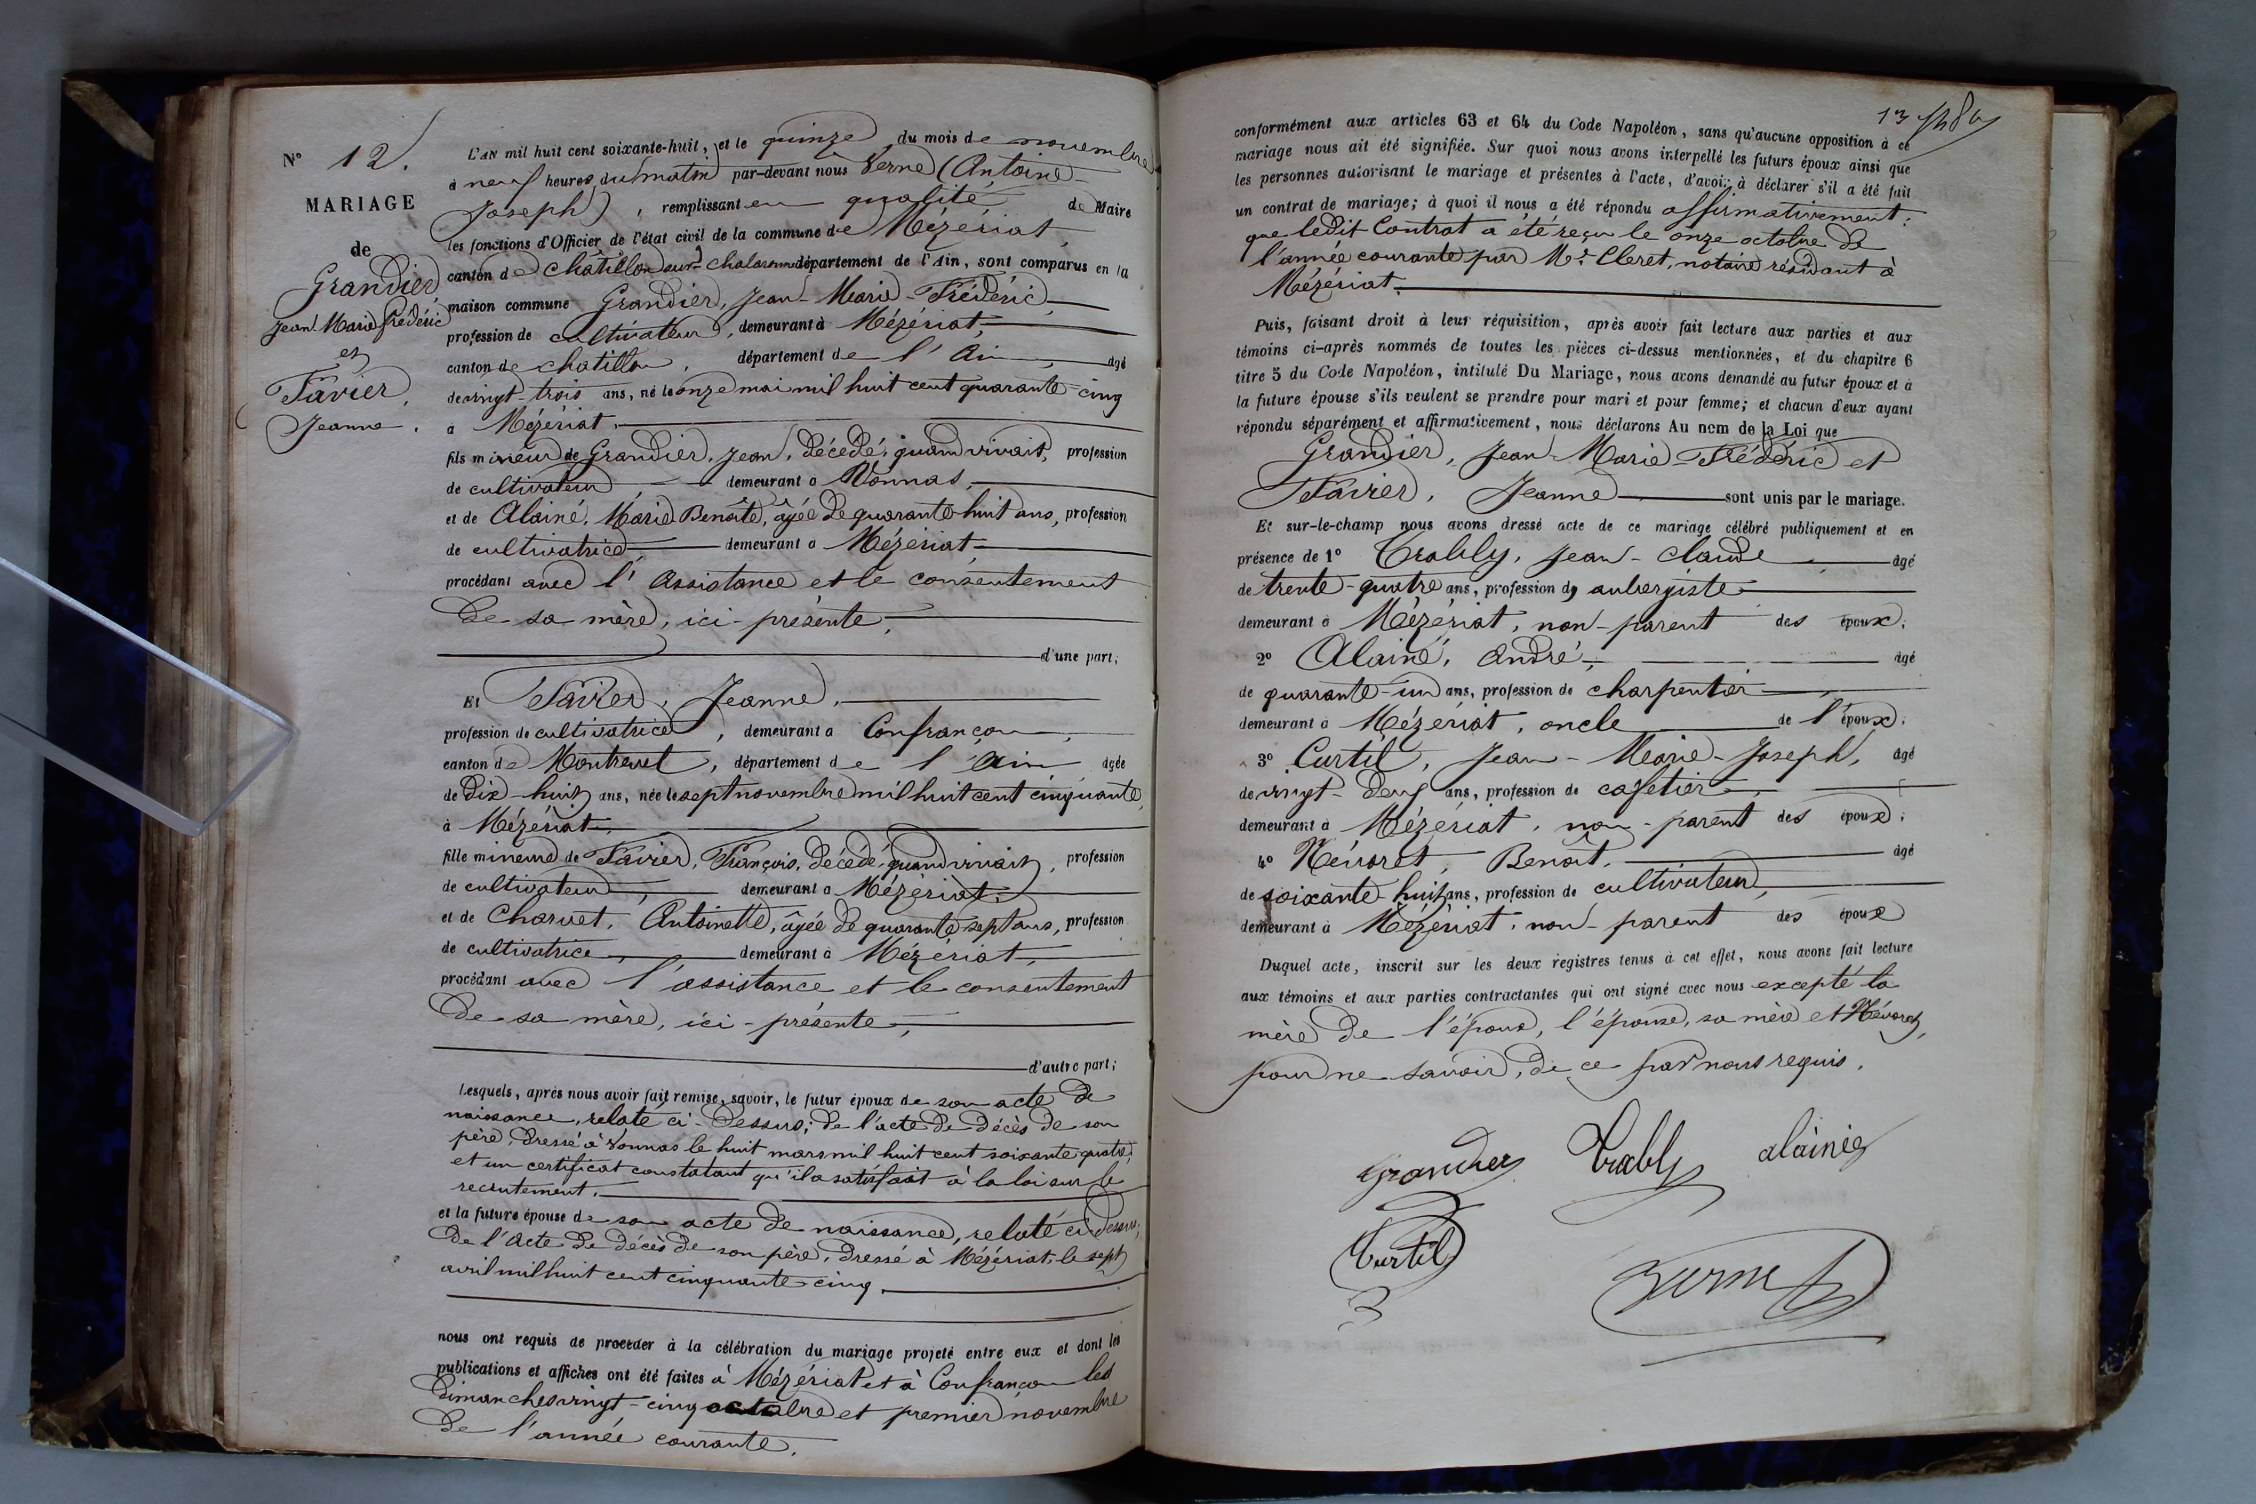 N° 12.
MARIAGE
de
Grandier
Jean Marie frédéric
et
Favier,
Jeanne.
L'AN mil huit cent soixante-huit, et le quinze du mois de novembre
à neuf heures du matin par-devant nous Verne (Antoine
Joseph), remplissant en qualité de Maire
les fonctions d'Officier de l'état civil de la commune de Mézériat
canton de Châtillon sur Chalaronne département de l'Ain, sont comparus en la
maison commune Grandier, Jean-Marie-Frédéric,
profession de cultivateur, demeurant à Mézériat,
canton de châtillon, département de l'Ain, âgé
de vingt-trois ans, né le onze mai mil huit cent quarante-cinq
à Mézériat,
fils mineur de Grandier, Jean, décédé, quand vivait, profession
de cultivateur, demeurant à Vonnas,
et de Alainé, Marie Benoîte, âgée de quarante-huit ans, profession
de cultivatrice, demeurant à Mézériat
procédant avec l'assistance et le consentement
de sa mère, ici-présente,
d'une part;
Et Favier, Jeanne,
profession de cultivatrice, demeurant à Confrançon,
canton de Montrevel, département de l'Ain âgée
de dix-huit ans, née le sept novembre mil huit cent cinquante
à Mézériat,
fille mineure de Favier, François, décédé, quand vivait, profession
de cultivateur, demeurant à Mézériat,
et de Charvet, Antoinette, âgée de quarante-sept ans, profession
de cultivatrice, demeurant à Mézériat,
procédant avec l'assistance et le consentement
de sa mère, ici-présente,
d'autre part;
Lesquels, après nous avoir fait remise, savoir, le futur époux de son acte de
naissance, relaté ci-dessus; de l'acte de décès de son
père, dressé à Vonnas le huit mars mil huit cent soixante quatre,
et un certificat constatant qu'il a satisfait à la loi sur le
recrutement.
et la future épouse de son acte de naissance, relaté ci-dessus,
de l'acte de décès de son père, dressé à Mézériat, le sept
avril mil huit cent cinquante-cinq.
nous ont requis de procéder à la célébration du mariage projeté entre eux et dont les
publications et affiches ont été faites à Mézériat et à Confrançon les
dimanches vingt-cinq octobre et premier novembre
de l'année courante.
conformément aux articles 63 et 64 du Code Napoléon, sans qu'aucune opposition à ce
mariage nous ait été signifiée. Sur quoi nous avons interpellé les futurs époux ainsi que
les personnes autorisant le mariage et présentes à l'acte, d'avoir à déclarer s'il a été fait
un contrat de mariage; à quoi il nous a été répondu affirmativement;
que ledit Contrat a été reçu le onze octobre de
l'année courante par Mr. Cleret, notaire résidant à
Mézériat.
Puis, faisant droit à leur réquisition, après avoir fait lecture aux parties et aux
témoins ci-après nommés de toutes les pièces ci-dessus mentionnées, et du chapitre 6
titre 5 du Code Napoléon, intitulé Du Mariage, nous avons demandé au futur époux et à
la future épouse s'ils veulent se prendre pour mari et pour femme; et chacun d'eux ayant
répondu séparément et affirmativement, nous déclarons Au nom de la Loi que
Grandier, Jean-Marie-Frédéric et
Favier, Jeanne sont unis par le mariage.
Et sur-le-champ nous avons dressé acte de ce mariage célébré publiquement et en
présence de 1° Trably, Jean-claude âgé
de trente-quatre ans, profession d'aubergiste
demeurant à Mézériat, non-parent des époux;
2° Alainé, André, âgé
de quarante-un ans, profession de charpentier,
demeurant à Mézériat, oncle de l'époux;
3° Curtil, Jean-Marie-Joseph, âgé
de vingt-deux ans, profession de cafetier,
demeurant à Mézériat, non-parent des époux;
4° Névoret, Benoît, âgé
de soixante-huit ans, profession de cultivateur,
demeurant à Mézériat, non-parent des époux
Duquel acte, inscrit sur les deux registres tenus à cet effet, nous avons fait lecture
aux témoins et aux parties contractantes qui ont signé avec nous excepté la
mère de l'époux, l'épouse, sa mère et Névoret,
pour ne savoir, de ce par nous requis.
Grandier Trably alainée
Curtil
Verne